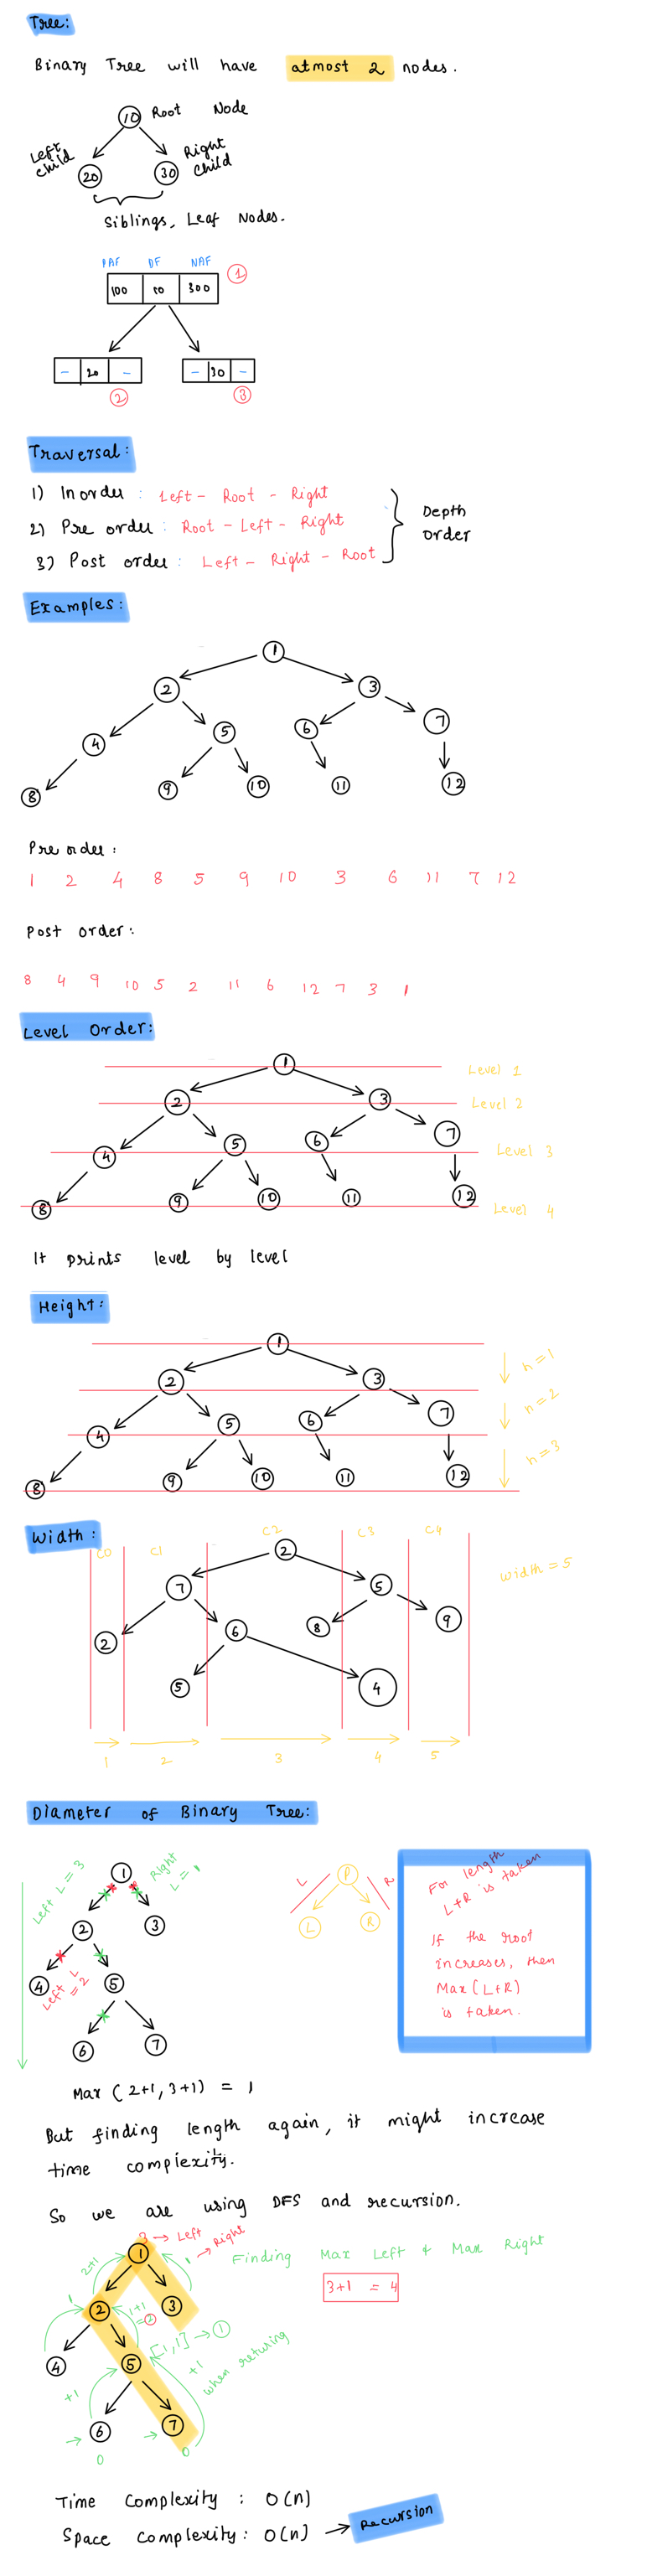 Tree:
Binary Tree will have atmost 2 nodes.
10 Root Node
Left Child
Right Child
20 30
Siblings, Leaf Nodes.
PAF DF NAF
100 10 300 1
- 20 - - 30 -
2 3
Traversal:
1) Inorder : Left - Root - Right
2) Pre order : Root - Left - Right
3) Post order : Left - Right - Root
Depth Order
Examples:
1
2 3
4 5 6 7
8 9 10 11 12
Pre order :
1 2 4 8 5 9 10 3 6 11 7 12
Post order :
8 4 9 10 5 2 11 6 12 7 3 1
Level Order:
1 Level 1
2 3 Level 2
4 5 6 7 Level 3
8 9 10 11 12 Level 4
It prints level by level
Height:
1
2 3 h=1
4 5 6 7 h=2
8 9 10 11 12 h=3
Width :
C0 C1 C2 C3 C4
2
7 5 width = 5
2 6 8 9
5 4
1 2 3 4 5
Diameter of Binary Tree:
Left L = 3
Right L = 1
1
2 3
4 5
Left L = 2
6 7
L P R
L R
For length L+R is taken
If the root
increases, then
Max(L+R)
is taken.
Max (2+1, 3+1) =
But finding length again, it might increase
time complexity.
So we are using DFS and recursion.
3 → Left
1 → Right
Finding Max Left & Max Right
3+1 = 4
2+1
1
1 2 3
1+1 = 2
[1,1] → 1
4 5
+1
+1 when returing
6 7
0 0
Time Complexity : O(n)
Space Complexity : O(n) → Recursion